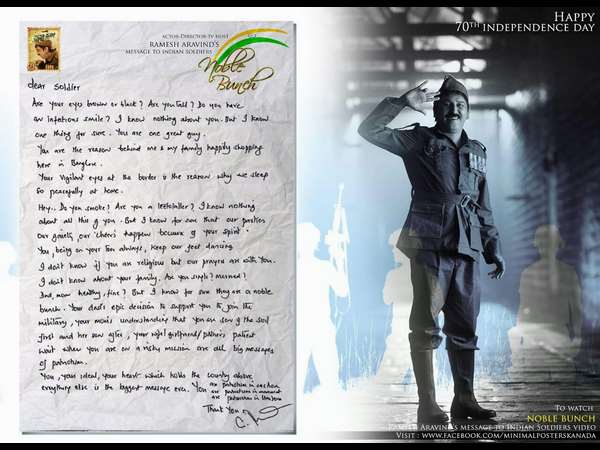 ACTOR-DIRECTOR-TV HOST
RAMESH ARAVIND'S
MESSAGE TO INDIAN SOLDIERS
Noble
Bunch
dear Soldier
Are your eyes brown or black? Are you tall? Do you have
an infectious smile? I know nothing about you. But I know
one thing for sure. You are one great guy.
You are the reason behind me & my family happily shopping
here in
Your vigilant eyes at the border is the reason why we sleep
so peacefully at home.
Hey.. Do you smoke? Are you a teetotaller? I know nothing
about all this of you. But I know for sure that our parties
our gaiety, our 'cheers' happen because of your spirit.
You, being on your toes always, keep our feet dancing.
I don't know if you are religious but our prayers are with you.
I don't know about your family. Are you single? married?
mom healthy, fine? But I know for sure they are a noble
bunch. Your dad's epic decision to support you to join the
military, your mom's understanding that you are son of the soil
first and her son after, your wife/girlfriend/partner's patient
wait when you are on a risky mission are all big messages
of patriotism.
You, your ideal, your heart which holds the country above
everything else is the biggest message ever. You are patriotism in
are patriotism in
are patriotism in
Thank You
HAPPY
70TH INDEPENDENCE DAY
TO WATCH
NOBLE BUNCH
RAMESH ARAVIND'S MESSAGE TO INDIAN SOLDIERS VIDEO
VISIT : WWW.FACEBOOK.COM/MINIMALPOSTERSKANADA